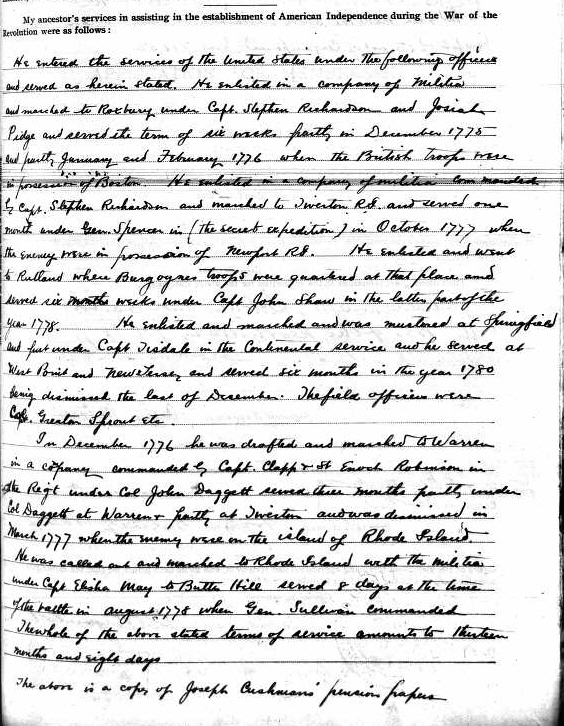 My ancestor's services in assisting in the establishment of American Independence during the War of the
Revolution were as follows:
He entered the services of the United States under the following officers
and served as herein stated. He enlisted in a company of Militia
and marched to Roxbury under Capt. Stephen Richardson and Josiah
Pidge and served the term of six weeks partly in December 1775
and partly January and February 1776 when the British troops were
in possession of Boston. He enlisted in a company of militia commanded
by Capt. Stephen Richardson and marched to Tiverton R.I. and served one
month under Gen. Spencer in (the secret expedition) in October 1777 when
the enemy were in possession of Newport R.I. He enlisted and went
to Rutland where Burgoynes troops were quartered at that place and
served six months weeks under Capt John Shaw in the latter part of the
year 1778. He enlisted and marched and was mustered at Springfield
and put under Capt Tisdale in the Continental service and he served at
West Point and New Jersey and served six months in the year 1780
being dismissed the last of December. The field officers were
Cols. Greaton Sprout etc.
In December 1776 he was drafted and marched to Warren
in a copany commanded by Capt. Clapp & Lt Enoch Robinson in
the Regt under Col John Daggett served three months partly under
Col Daggett at Warren & partly at Tiverton and was dismissed in
March 1777 when the enemy were on the island of Rhode Island.
He was called out and marched to Rhode Island with the militia
under Capt Elisha May to Butts Hill served 8 days at the time
of the battle in august 1778 when Gen. Sullivan commanded
The whole of the above stated terms of service amounts to thirteen
months and eight days
The above is a copy of Joseph Cushmans' pension papers